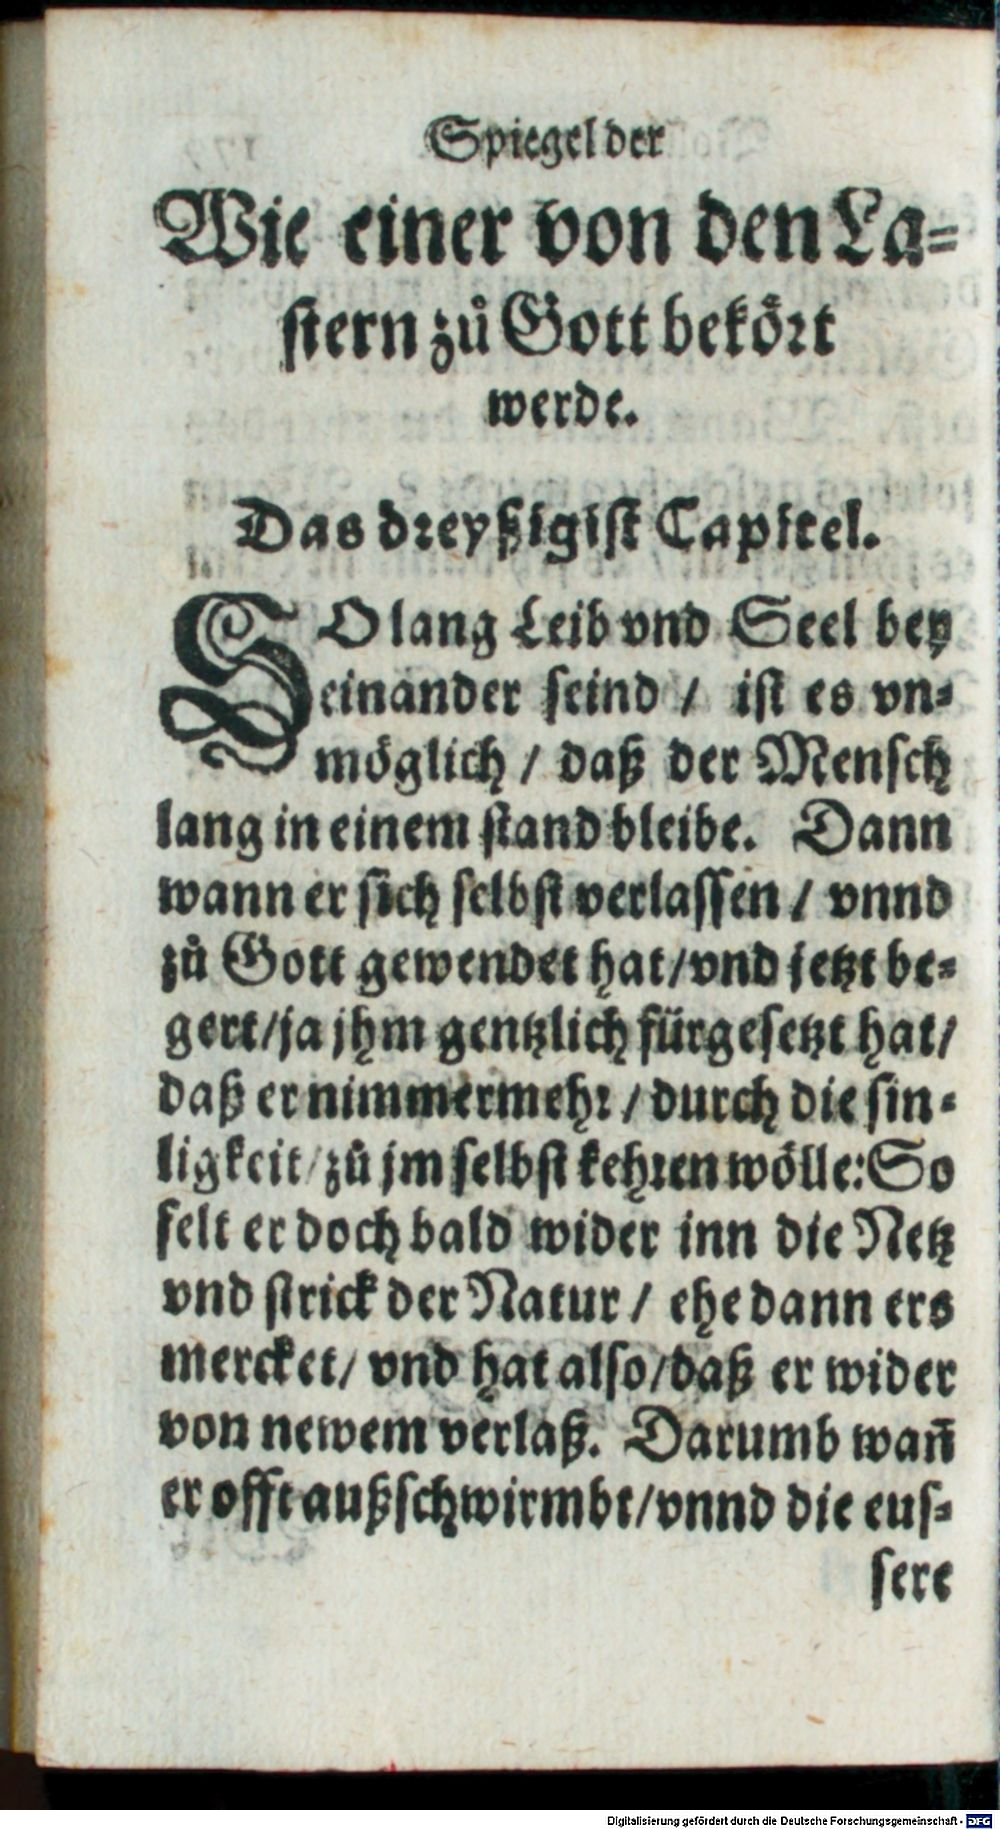 Spiegel der
Wie einer von den La-
stern zů Gott bekört
werde.
Das dreyßigist Capitel.
SO lang Leib vnd Seel bey
einander seind / ist es vn-
möglich / daß der Mensch
lang in einem stand bleibe. Dann
wann er sich selbst verlassen / vnnd
zů Gott gewendet hat/vnd jetzt be-
gert/ja jhm gentzlich fürgesetzt hat/
daß er nimmermehr / durch die sin-
ligkeit/zů jm selbst kehren wölle: So
felt er doch bald wider inn die Netz
vnd strick der Natur / ehe dann ers
mercket/ vnd hat also/daß er wider
von newem verlaß. Darumb wañ
er offt außschwirmbt/vnnd die eus-
sere
Digitalisierung gefördert durch die Deutsche Forschungsgemeinschaft - DFG